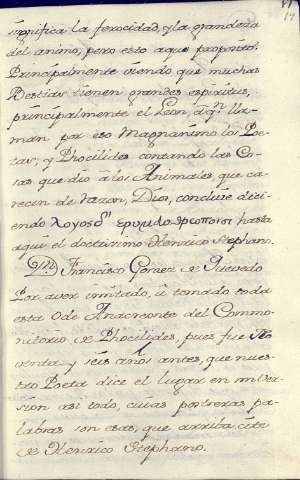 significa la ferocidad, y la grandeza
del animo, pero esto aque proposito?
Principalmente siendo que muchas
Bestias tienen grandes espiritus,
principalmente el Leon, â qn lla-
man por eso Magnanimo los Poe-
tas, y Phocilides contando las Co-
sas que dio â los Animales, que ca-
recen de razon, Dios, concluie dici-
endo λογοσδ hasta
aqui el doctissimo Henrico Stephano.
Dn Francisco Gomez de Quevedo
Por aver imitado, ù tomado toda
esta Ode Anacreonte del Commo-
nitorio de Phocilides, pues fue No-
venta y seis años antes, que nues-
tro Poeta dice el lugar en mi ver-
sion asi todo, cuias postreras pa-
labras son esas, que arriba cite
de Henrico Stephano.